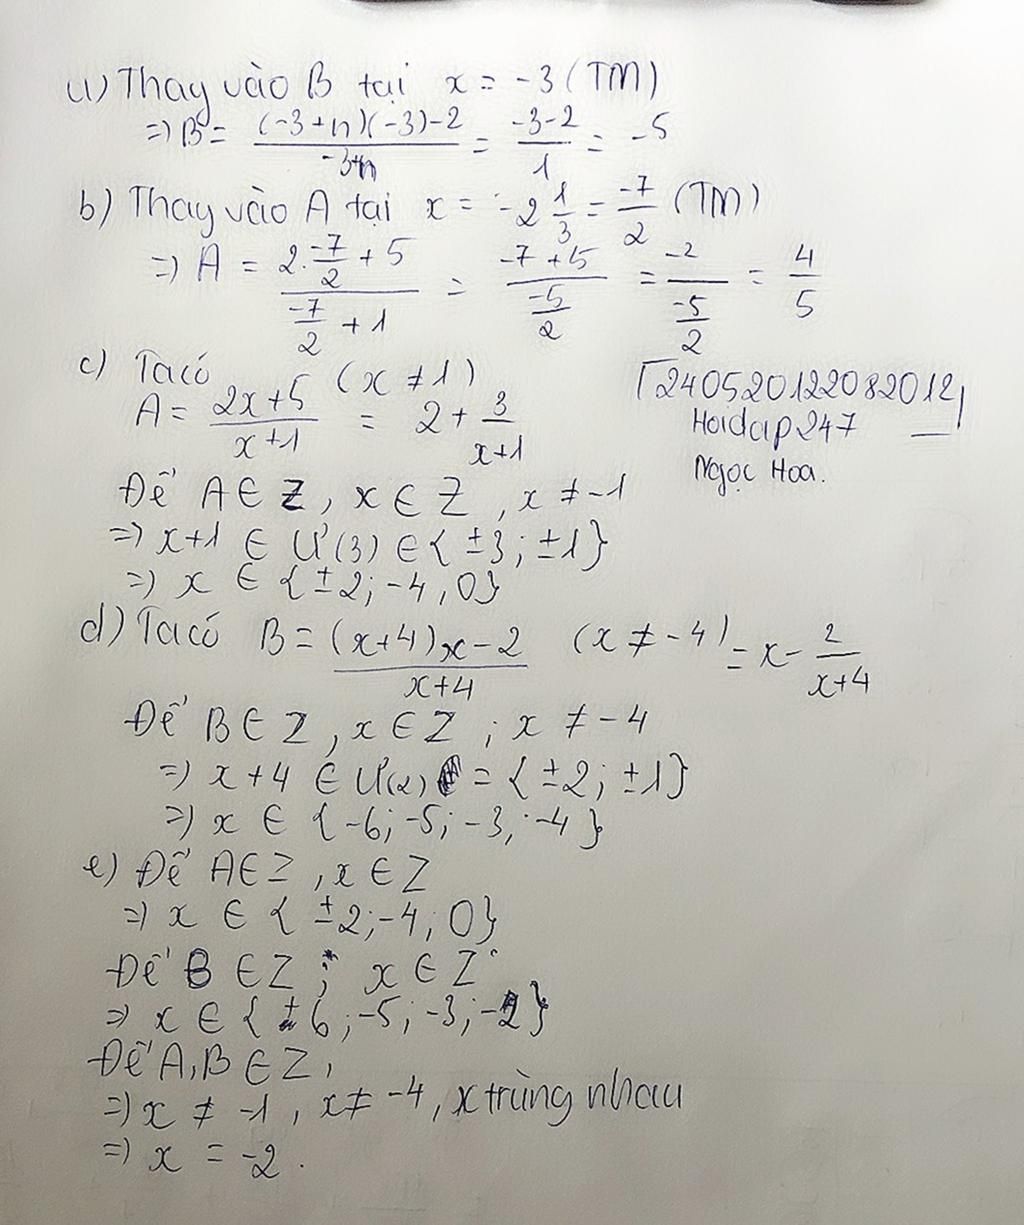 a) Thay vào B tại x = -3 (TM)
=> B = ((-3+4)(-3)-2)/(-3+4) = (-3-2)/1 = -5
b) Thay vào A tại x = -2 1/3 = -7/2 (TM)
=> A = (2.(-7/2)+5)/(-7/2+1) = (-7+5)/(-5/2) = -2/(-5/2) = 4/5
c) Ta có (x ≠ 1)
A = (2x+5)/(x+1) = 2 + 3/(x+1)
[24052012208 2012]
Hoidap247
Ngọc Hoa.
Để A ∈ Z, x ∈ Z, x ≠ -1
=> x+1 ∈ Ư(3) ∈ {±3; ±1}
=> x ∈ {±2; -4, 0}
d) Ta có B = ((x+4)x-2)/(x+4) (x ≠ -4) = x - 2/(x+4)
Để B ∈ Z, x ∈ Z; x ≠ -4
=> x+4 ∈ Ư(2) = {±2; ±1}
=> x ∈ {-6; -5; -3; -4}
e) Để A ∈ Z, x ∈ Z
=> x ∈ {±2; -4; 0}
Để B ∈ Z; x ∈ Z
=> x ∈ {±6; -5; -3; -2}
Để A, B ∈ Z,
=> x ≠ -1, x ≠ -4, x trùng nhau
=> x = -2.